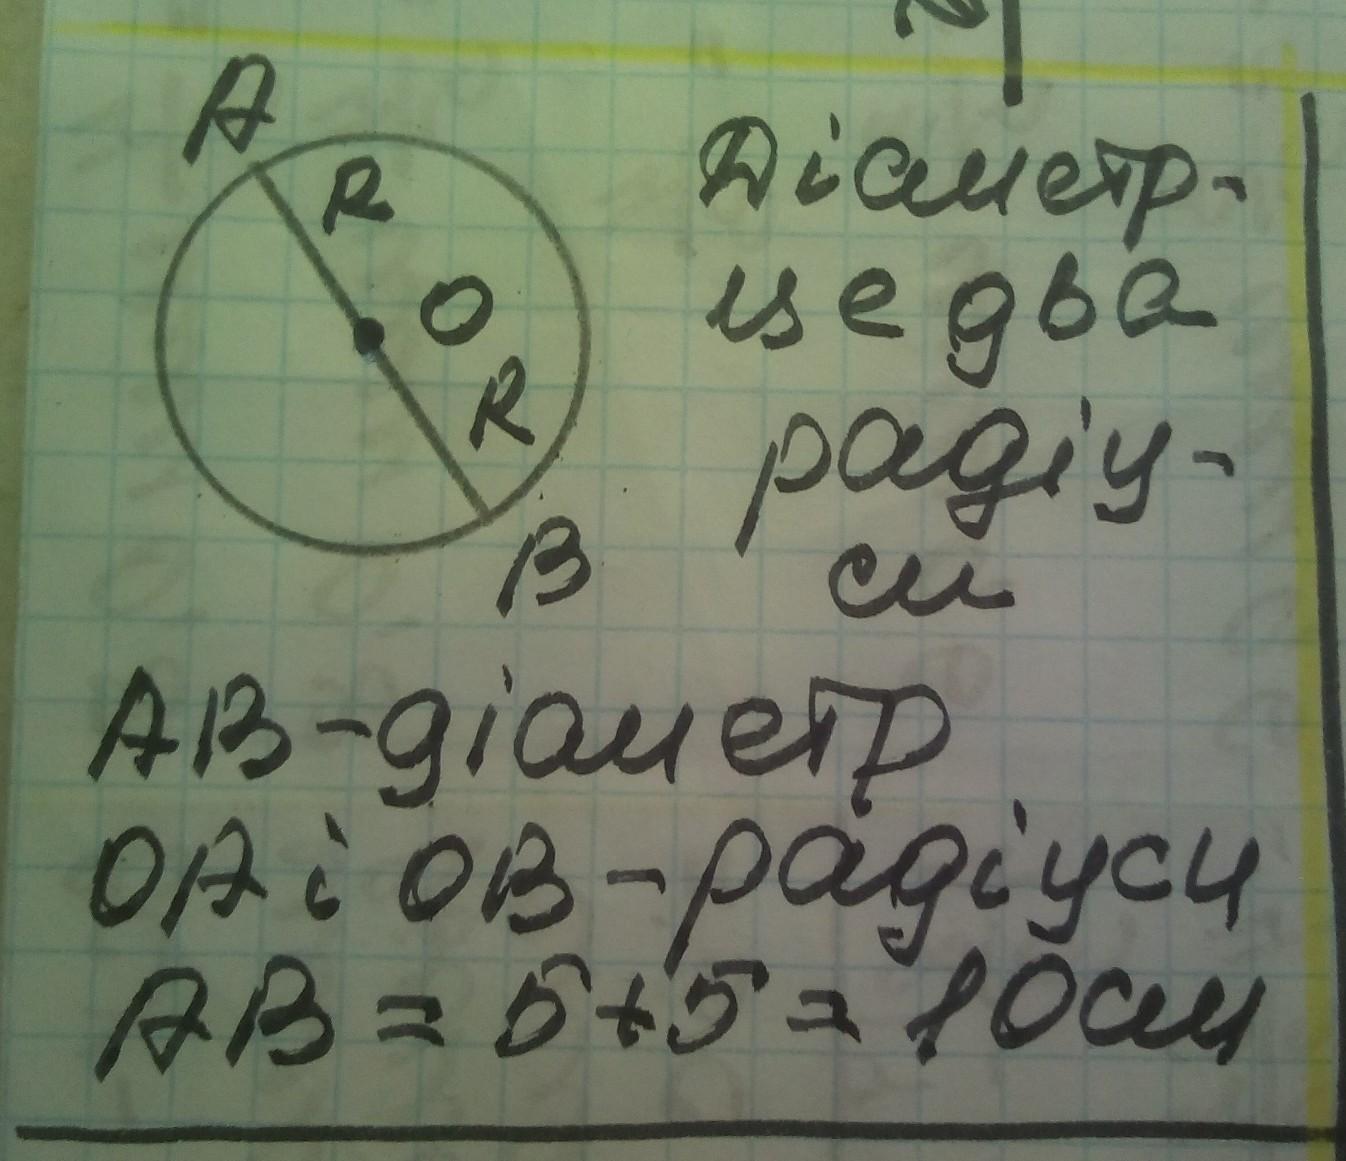 A
R
O
R
B
Діаметр-
це два
радіу-
си
AB-діаметр
OA і OB-радіуси
AB = 5+5 = 10см